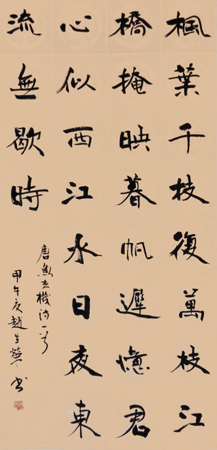 楓葉千枝復萬枝江
橋掩映暮帆遲憶君
心似西江水日夜東
流無歇時
唐魚玄機詩一首
甲午夏趙書